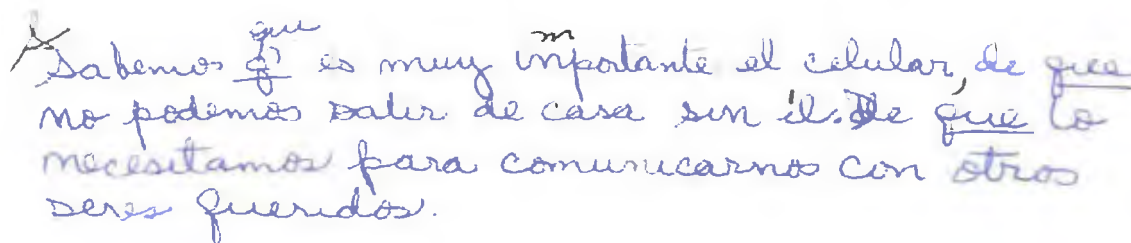 que m
Sabemos q' es muy inportante el celular, de que
no podemos salir de casa sin él. De que lo
necesitamos para comunicarnos con otros
seres queridos.